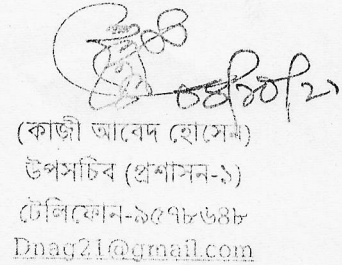 ০৪/১০/২১
(কাজী আবেদ হোসেন)
উপসচিব (প্রশাসন-১)
টেলিফোন-৯৫৭৮৬৪৮
Dnag21@gmail.com